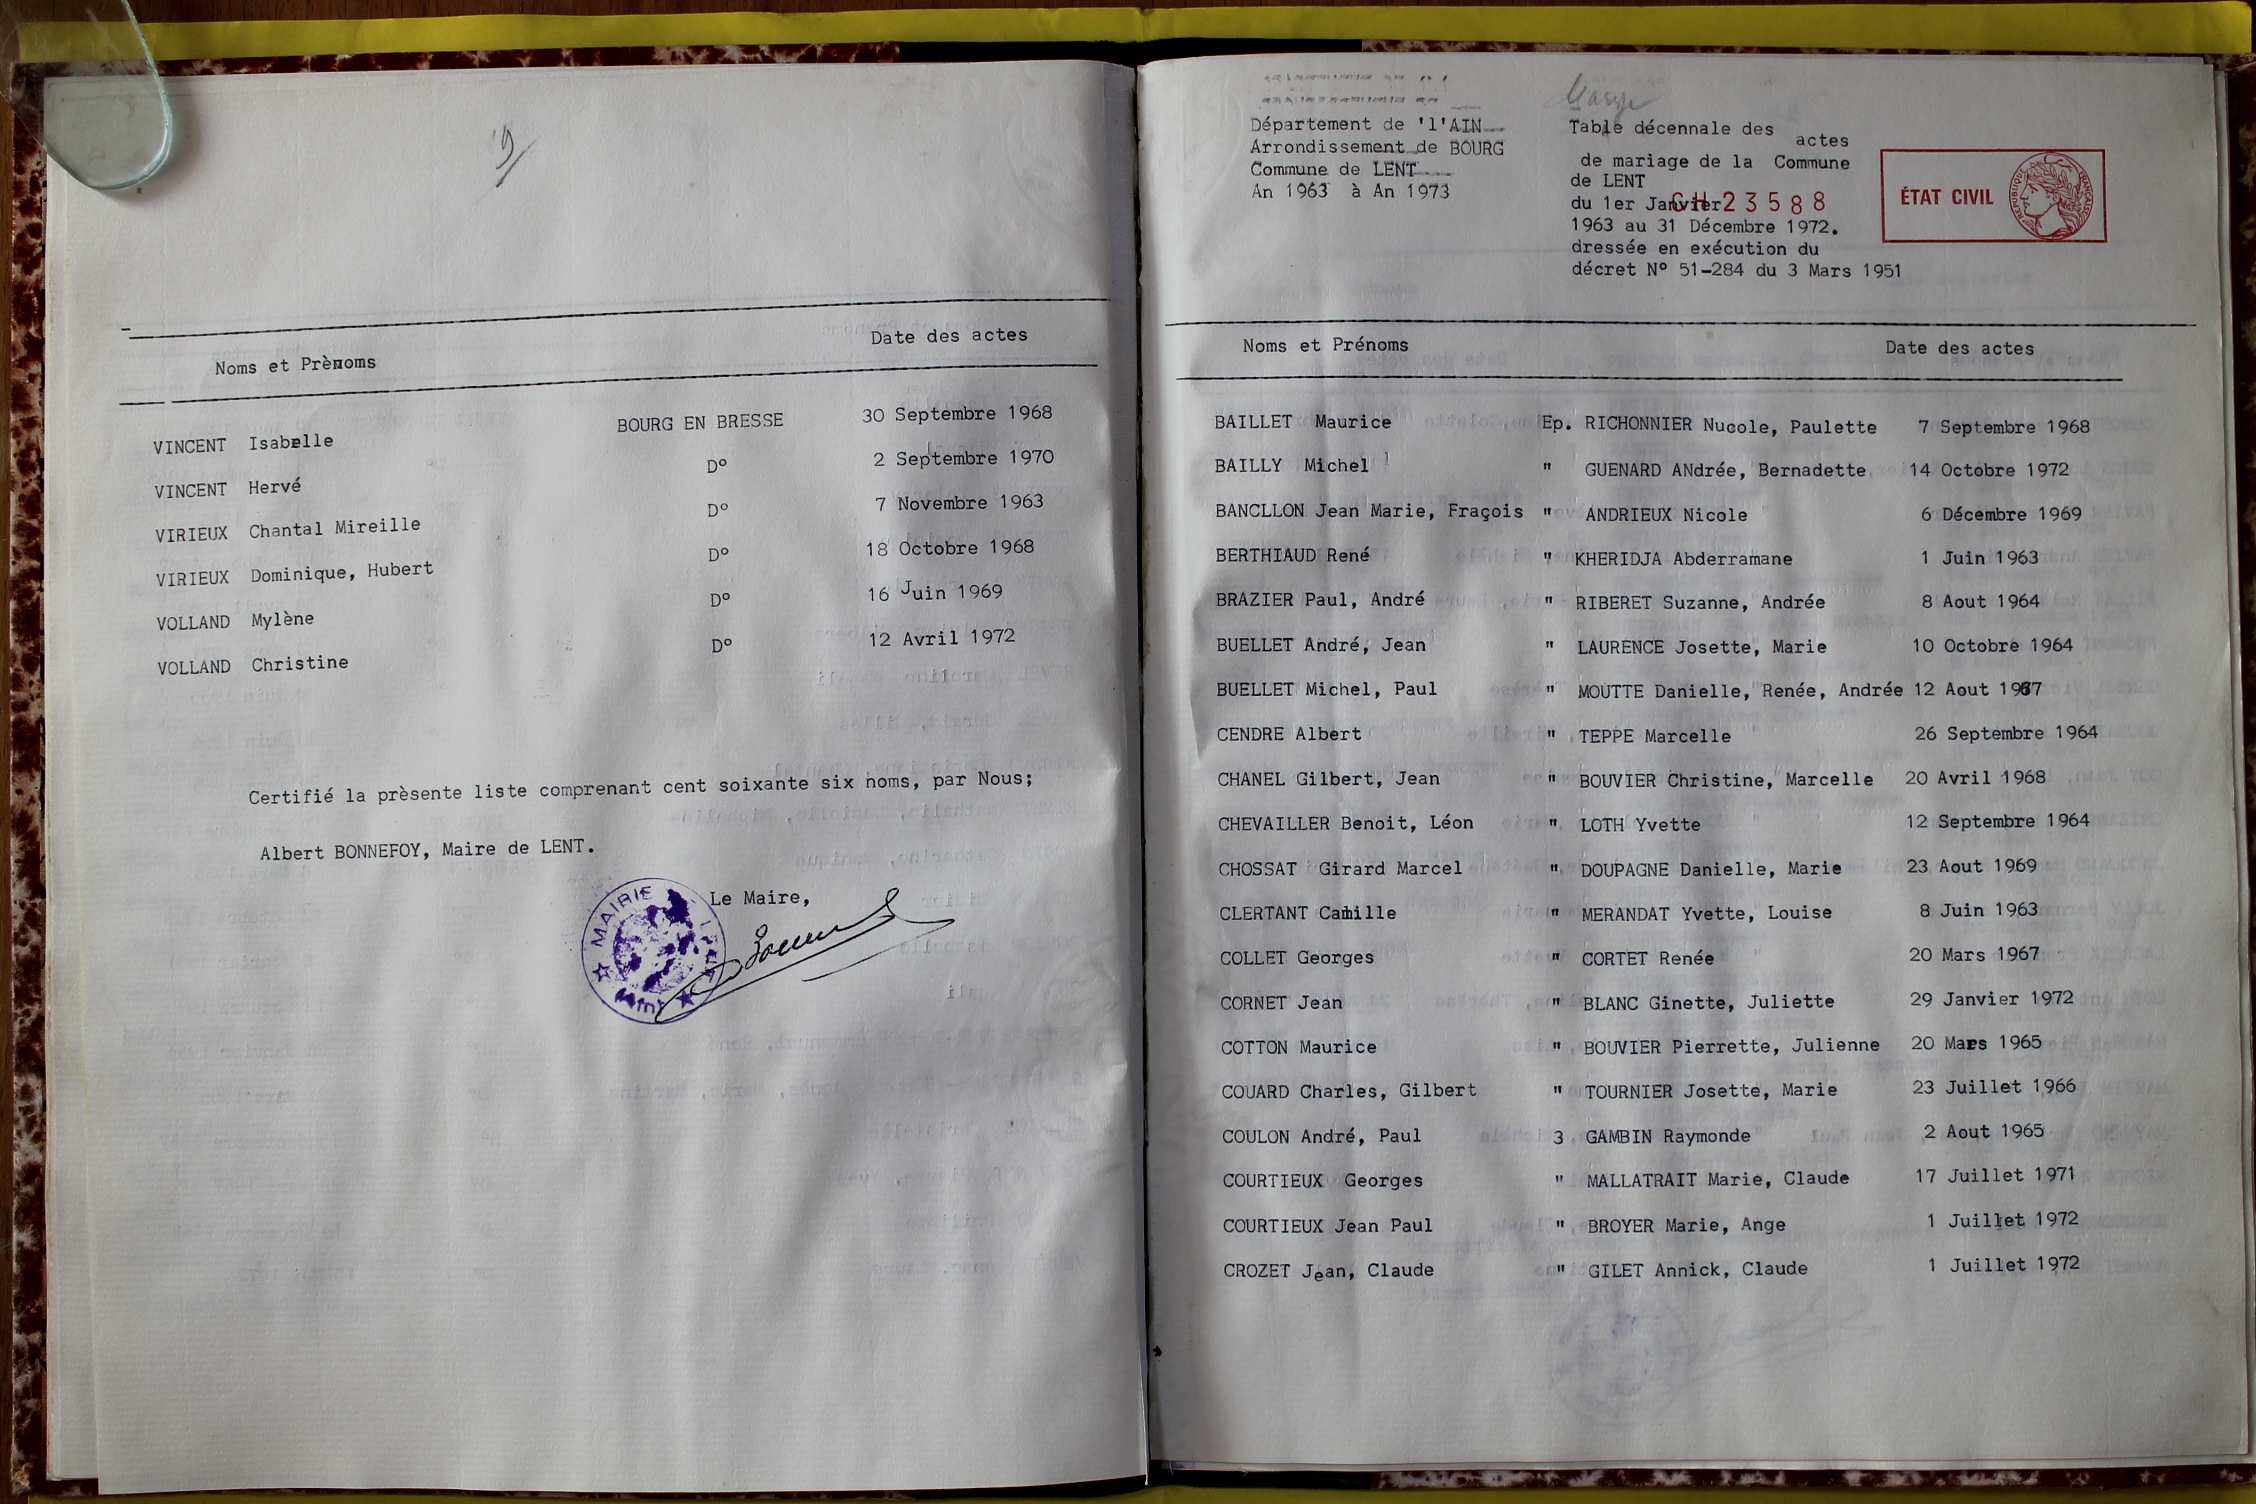 Noms et Prènoms Date des actes
VINCENT Isabelle BOURG EN BRESSE 30 Septembre 1968
VINCENT Hervé D° 2 Septembre 1970
VIRIEUX Chantal Mireille D° 7 Novembre 1963
VIRIEUX Dominique, Hubert D° 18 Octobre 1968
VOLLAND Mylène D° 16 Juin 1969
VOLLAND Christine D° 12 Avril 1972
Certifié la prèsente liste comprenant cent soixante six noms, par Nous;
Albert BONNEFOY, Maire de LENT.
Le Maire,
MAIRIE
Département de 'l'AIN
Arrondissement de BOURG
Commune de LENT
An 1963 à An 1973
Table décennale des actes
de mariage de la Commune
de LENT
du 1er Janvier
CH 23588
1963 au 31 Décembre 1972.
dressée en exécution du
décret N° 51-284 du 3 Mars 1951
ÉTAT CIVIL
RÉPUBLIQUE FRANÇAISE
Noms et Prénoms Date des actes
BAILLET Maurice Ep. RICHONNIER Nucole, Paulette 7 Septembre 1968
BAILLY Michel " GUENARD ANdrée, Bernadette 14 Octobre 1972
BANCLLON Jean Marie, Fraçois " ANDRIEUX Nicole 6 Décembre 1969
BERTHIAUD René " KHERIDJA Abderramane 1 Juin 1963
BRAZIER Paul, André " RIBERET Suzanne, Andrée 8 Aout 1964
BUELLET André, Jean " LAURENCE Josette, Marie 10 Octobre 1964
BUELLET Michel, Paul " MOUTTE Danielle, Renée, Andrée 12 Aout 1967
CENDRE Albert " TEPPE Marcelle 26 Septembre 1964
CHANEL Gilbert, Jean " BOUVIER Christine, Marcelle 20 Avril 1968
CHEVAILLER Benoit, Léon " LOTH Yvette 12 Septembre 1964
CHOSSAT Girard Marcel " DOUPAGNE Danielle, Marie 23 Aout 1969
CLERTANT Camille " MERANDAT Yvette, Louise 8 Juin 1963
COLLET Georges " CORTET Renée 20 Mars 1967
CORNET Jean " BLANC Ginette, Juliette 29 Janvier 1972
COTTON Maurice " BOUVIER Pierrette, Julienne 20 Mars 1965
COUARD Charles, Gilbert " TOURNIER Josette, Marie 23 Juillet 1966
COULON André, Paul 3 GAMBIN Raymonde 2 Aout 1965
COURTIEUX Georges " MALLATRAIT Marie, Claude 17 Juillet 1971
COURTIEUX Jean Paul " BROYER Marie, Ange 1 Juillet 1972
CROZET Jean, Claude " GILET Annick, Claude 1 Juillet 1972